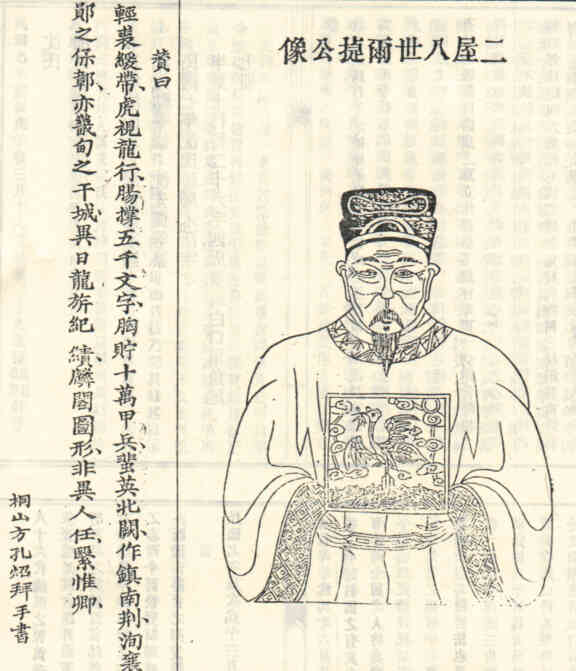 二屋八世爾㨗公像
贊曰
輕裘緩帶虎視龍行腸撐五千文字胸貯十萬甲兵蜚英北闕作鎮南荆洵襄
鄖之保鄣亦畿甸之干城異日龍旂紀績麟閣圖形非異人任繄惟卿
桐山方孔炤拜手書